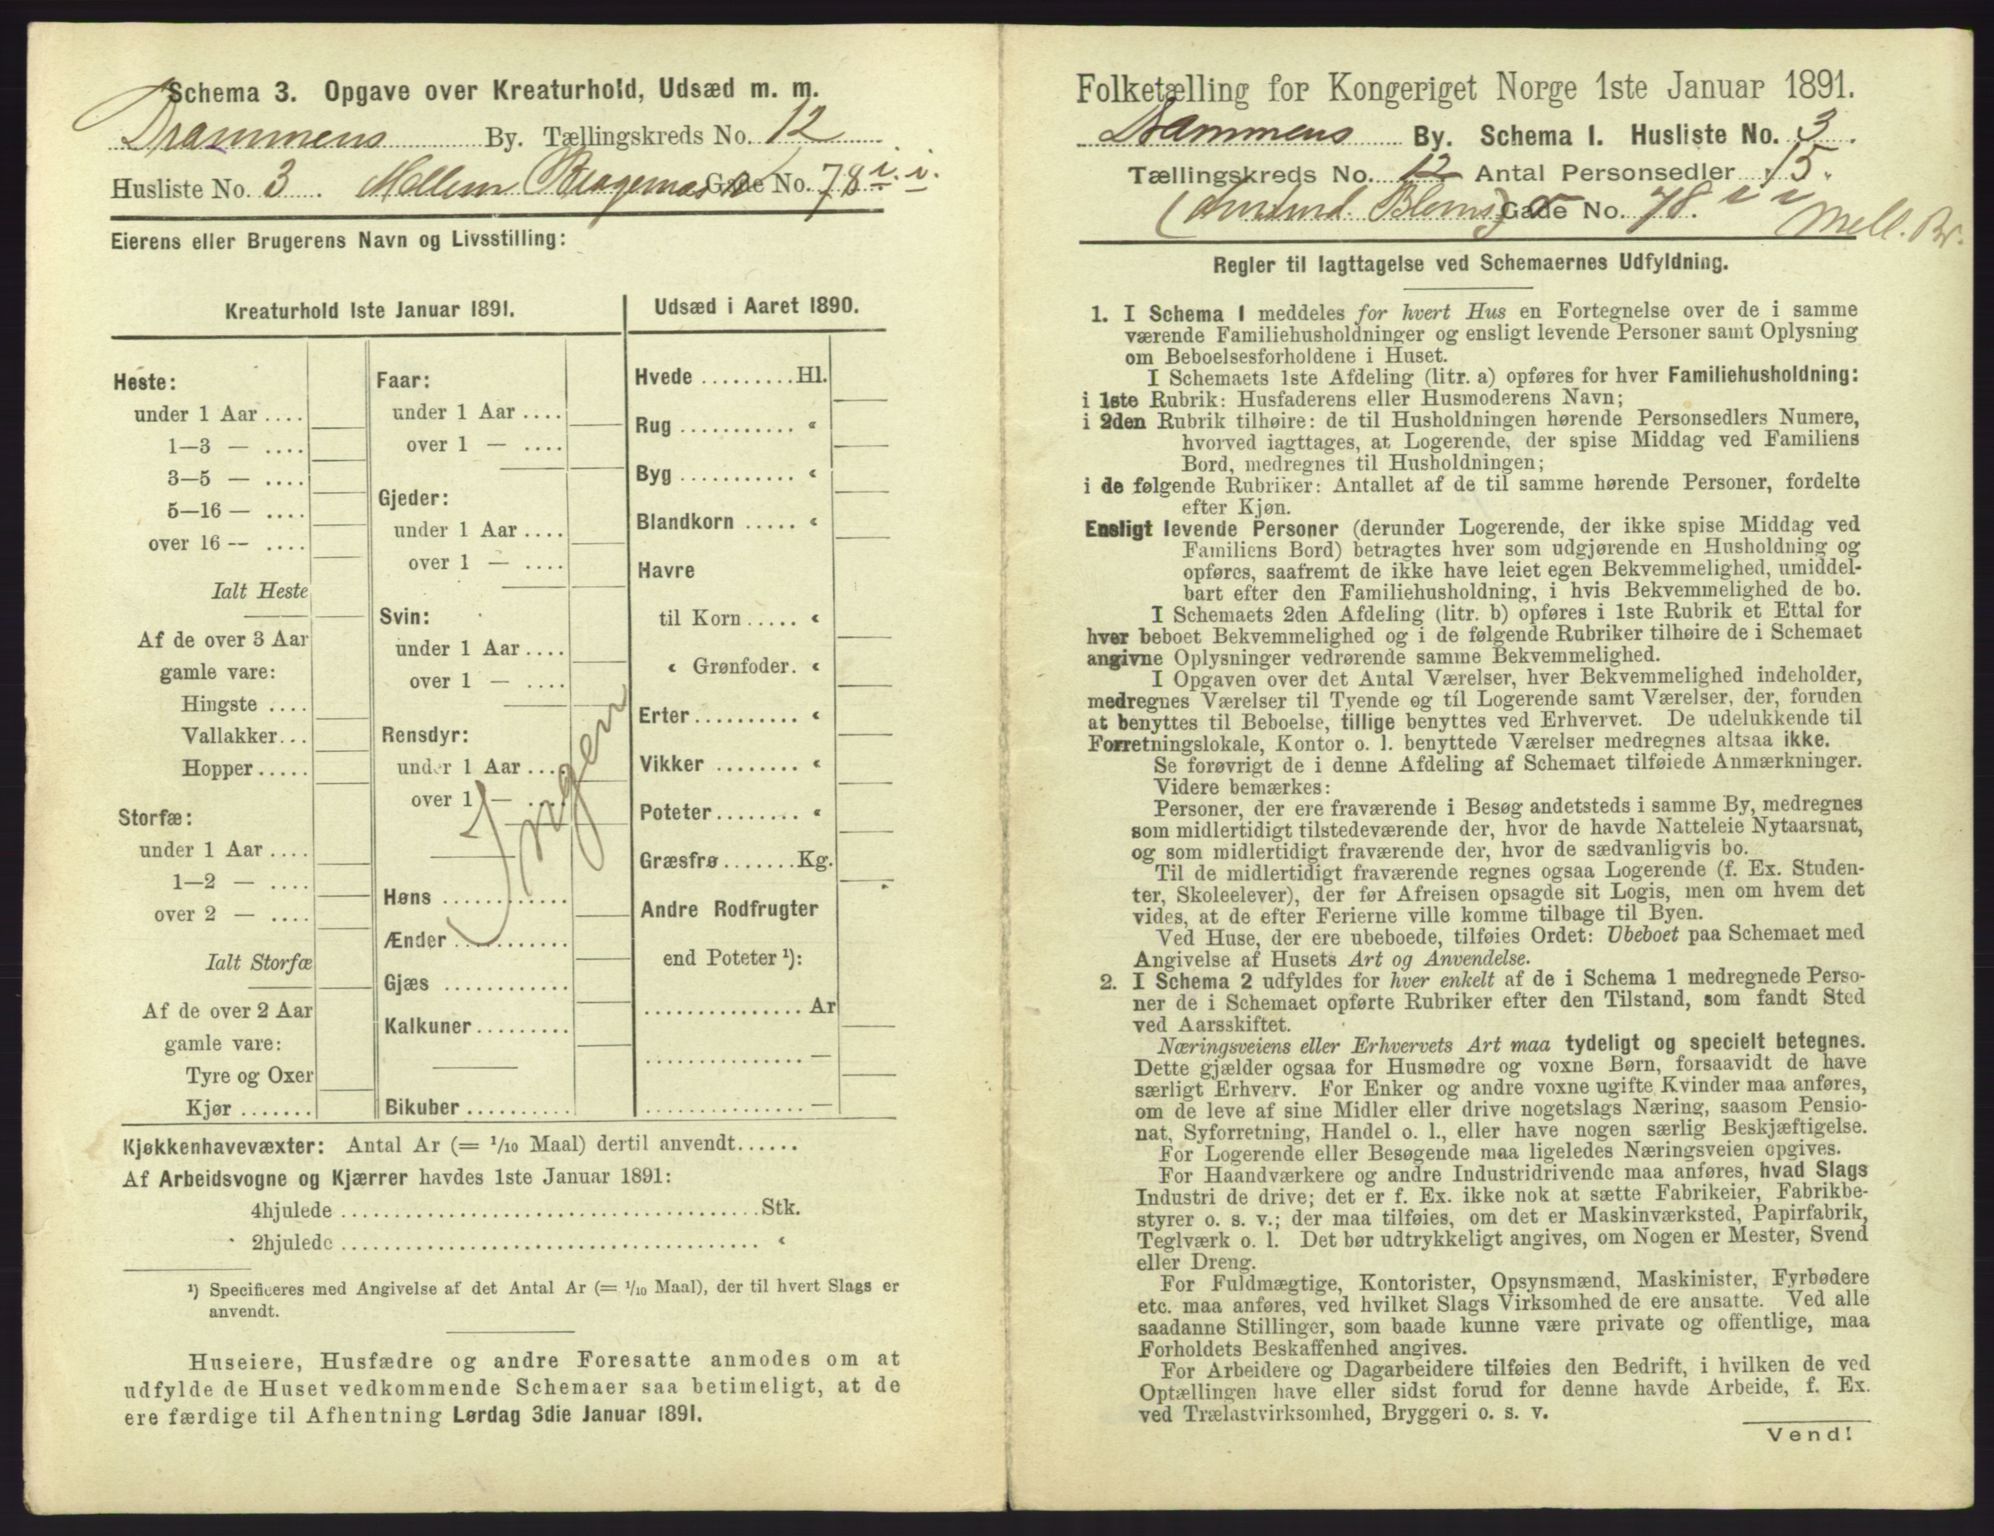 Schema 3. Opgave over Kreaturhold, Udsæd m. m.
Drammens By. Tællingskreds No. 12
Husliste No. 3. Mellem Bragernæs Gade No. 78 i. i.
Eierens eller Brugerens Navn og Livsstilling:
Kreaturhold 1ste Januar 1891.
Heste:
under 1 Aar ....
1—3 — ....
3—5 — ....
5—16 — ....
over 16 — ....
Ialt Heste
Af de over 3 Aar
gamle vare:
Hingste ....
Vallakker...
Hopper.....
Storfæ:
under 1 Aar ....
1—2 — ....
over 2 — ....
Ialt Storfæ
Af de over 2 Aar
gamle vare:
Tyre og Oxer
Kjør .......
Faar:
under 1 Aar ....
over 1 — ....
Gjeder:
under 1 Aar ....
over 1 — ....
Svin:
under 1 Aar ....
over 1 — ....
Rensdyr:
under 1 Aar ....
over 1 — ....
Ingen
Høns ............
Ænder ...........
Gjæs ............
Kalkuner.........
Bikuber ..........
Udsæd i Aaret 1890.
Hvede .........Hl.
Rug ........... "
Byg ........... "
Blandkorn ..... "
Havre
til Korn ..... "
" Grønfoder. "
Erter.......... "
Vikker ........ "
Poteter........ "
Græsfrø .......Kg.
Andre Rodfrugter
end Poteter ¹):
............... Ar
............... —
............... —
Kjøkkenhavevæxter: Antal Ar (= 1/10 Maal) dertil anvendt......
Af Arbeidsvogne og Kjærrer havdes 1ste Januar 1891:
4hjulede ........................................Stk.
2hjulede ........................................ "
¹) Specificeres med Angivelse af det Antal Ar (= 1/10 Maal), der til hvert Slags er
anvendt.
Huseiere, Husfædre og andre Foresatte anmodes om at
udfylde de Huset vedkommende Schemaer saa betimeligt, at de
ere færdige til Afhentning Lørdag 3die Januar 1891.
Folketælling for Kongeriget Norge 1ste Januar 1891.
Drammens By. Schema 1. Husliste No. 3.
Tællingskreds No. 12 Antal Personsedler 15.
Gade No. 78. i i Mell. Br.
Regler til Iagttagelse ved Schemaernes Udfyldning.
1. I Schema 1 meddeles for hvert Hus en Fortegnelse over de i samme
værende Familiehusholdninger og ensligt levende Personer samt Oplysning
om Beboelsesforholdene i Huset.
I Schemaets 1ste Afdeling (litr. a) opføres for hver Familiehusholdning:
i 1ste Rubrik: Husfaderens eller Husmoderens Navn;
i 2den Rubrik tilhøire: de til Husholdningen hørende Personsedlers Numere,
hvorved iagttages, at Logerende, der spise Middag ved Familiens
Bord, medregnes til Husholdningen;
i de følgende Rubriker: Antallet af de til samme hørende Personer, fordelte
efter Kjøn.
Ensligt levende Personer (derunder Logerende, der ikke spise Middag ved
Familiens Bord) betragtes hver som udgjørende en Husholdning og
opføres, saafremt de ikke have leiet egen Bekvemmelighed, umiddel-
bart efter den Familiehusholdning, i hvis Bekvemmelighed de bo.
I Schemaets 2den Afdeling (litr. b) opføres i 1ste Rubrik et Ettal for
hver beboet Bekvemmelighed og i de følgende Rubriker tilhøire de i Schemaet
angivne Oplysninger vedrørende samme Bekvemmelighed.
I Opgaven over det Antal Værelser, hver Bekvemmelighed indeholder,
medregnes Værelser til Tyende og til Logerende samt Værelser, der, foruden
at benyttes til Beboelse, tillige benyttes ved Erhvervet. De udelukkende til
Forretningslokale, Kontor o. l. benyttede Værelser medregnes altsaa ikke.
Se forøvrigt de i denne Afdeling af Schemaet tilføiede Anmærkninger.
Videre bemærkes:
Personer, der ere fraværende i Besøg andetsteds i samme By, medregnes
som midlertidigt tilstedeværende der, hvor de havde Natteleie Nytaarsnat,
og som midlertidigt fraværende der, hvor de sædvanligvis bo.
Til de midlertidigt fraværende regnes ogsaa Logerende (f. Ex. Studen-
ter, Skoleelever), der før Afreisen opsagde sit Logis, men om hvem det
vides, at de efter Ferierne ville komme tilbage til Byen.
Ved Huse, der ere ubeboede, tilføies Ordet: Ubeboet paa Schemaet med
Angivelse af Husets Art og Anvendelse.
2. I Schema 2 udfyldes for hver enkelt af de i Schema 1 medregnede Perso-
ner de i Schemaet opførte Rubriker efter den Tilstand, som fandt Sted
ved Aarsskiftet.
Næringsveiens eller Erhvervets Art maa tydeligt og specielt betegnes.
Dette gjælder ogsaa for Husmødre og voxne Børn, forsaavidt de have
særligt Erhverv. For Enker og andre voxne ugifte Kvinder maa anføres,
om de leve af sine Midler eller drive nogetslags Næring, saasom Pensio-
nat, Syforretning, Handel o. l., eller have nogen særlig Beskjæftigelse.
For Logerende eller Besøgende maa ligeledes Næringsveien opgives.
For Haandværkere og andre Industridrivende maa anføres, hvad Slags
Industri de drive; det er f. Ex. ikke nok at sætte Fabrikeier, Fabrikbe-
styrer o. s. v.; der maa tilføies, om det er Maskinværksted, Papirfabrik,
Teglværk o. l. Det bør udtrykkeligt angives, om Nogen er Mester, Svend
eller Dreng.
For Fuldmægtige, Kontorister, Opsynsmænd, Maskinister, Fyrbødere
etc. maa anføres, ved hvilket Slags Virksomhed de ere ansatte. Ved alle
saadanne Stillinger, som baade kunne være private og offentlige, maa
Forholdets Beskaffenhed angives.
For Arbeidere og Dagarbeidere tilføies den Bedrift, i hvilken de ved
Optællingen have eller sidst forud for denne havde Arbeide, f. Ex.
ved Trælastvirksomhed, Bryggeri o. s. v.
Vend!